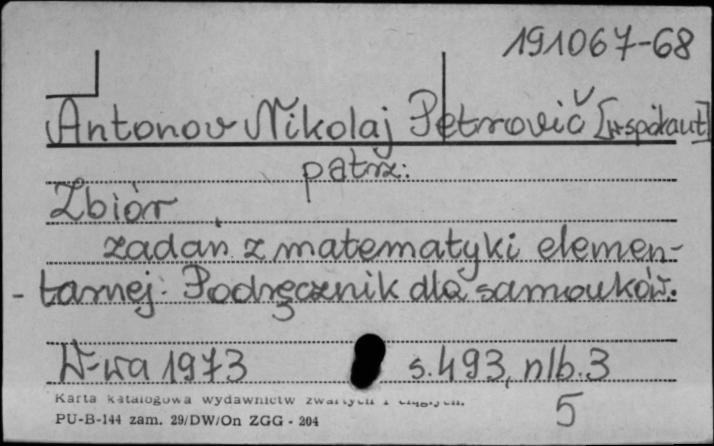 191067-68
Antonov Nikolaj Petrovič [współaut]
patrz:
Zbiór
zadań z matematyki elemen-
- tarnej: Podręcznik dla samouków.
W-wa 1973 s.493, nlb.3
Karta katalogowa wydawnictw zwartych i ciągłych. 5
PU-B-144 zam. 29/DW/On ZGG - 204